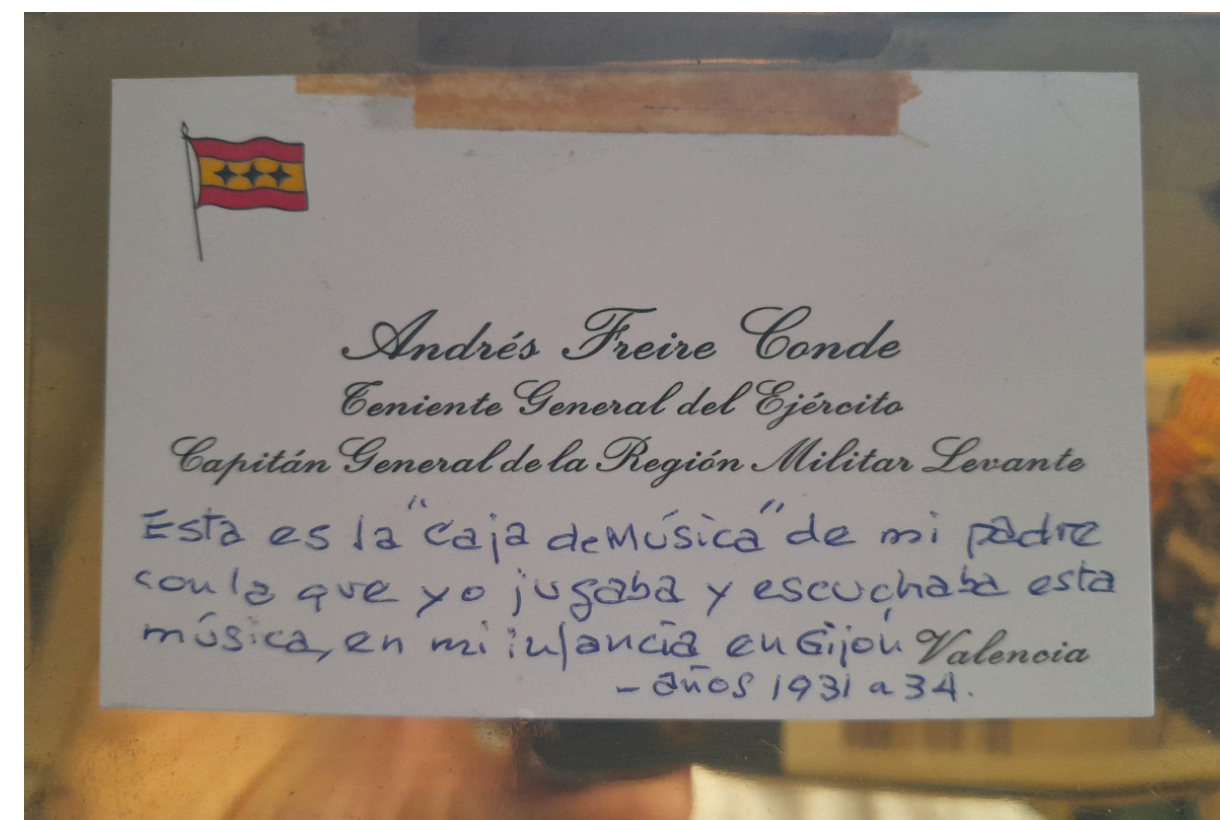 Andrés Freire Conde
Teniente General del Ejército
Capitán General de la Región Militar Levante
Esta es la "Caja de Música" de mi padre
con la que yo jugaba y escuchaba esta
música, en mi infancia en Gijón
Valencia
- años 1931 a 34.